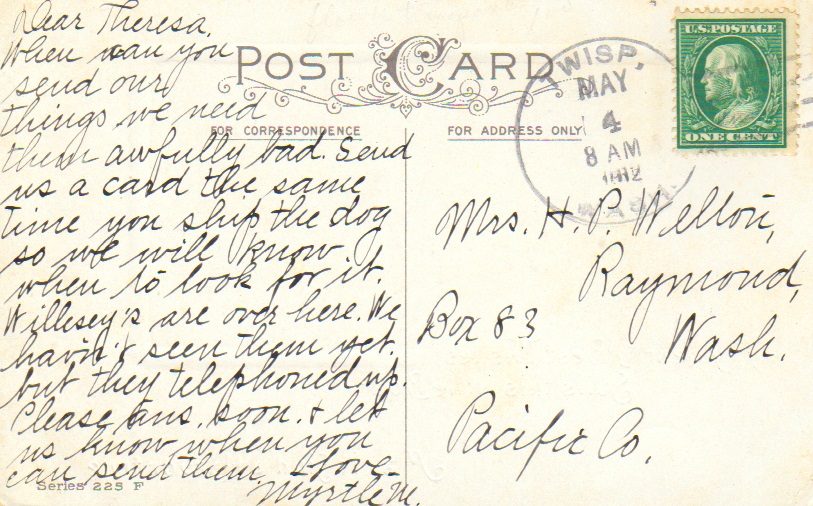 Dear Theresa,
When can you
send our
things we need
them awfully bad. Send
us a card the same
time you ship the dog
so we will know
when to look for it.
Willesey's are over here. We
havin't seen them yet.
but they telephoned up.
Please ans. soon. & let
us know when you
can send them. Love
Myrtle M.
Series 225 F
POST CARD
FOR CORRESPONDENCE
FOR ADDRESS ONLY
TWISP,
MAY
4
8 AM
1912
WASH.
U.S. POSTAGE
ONE CENT
Mrs. H. P. Wellon,
Raymond,
Box 83
Wash.
Pacific Co.